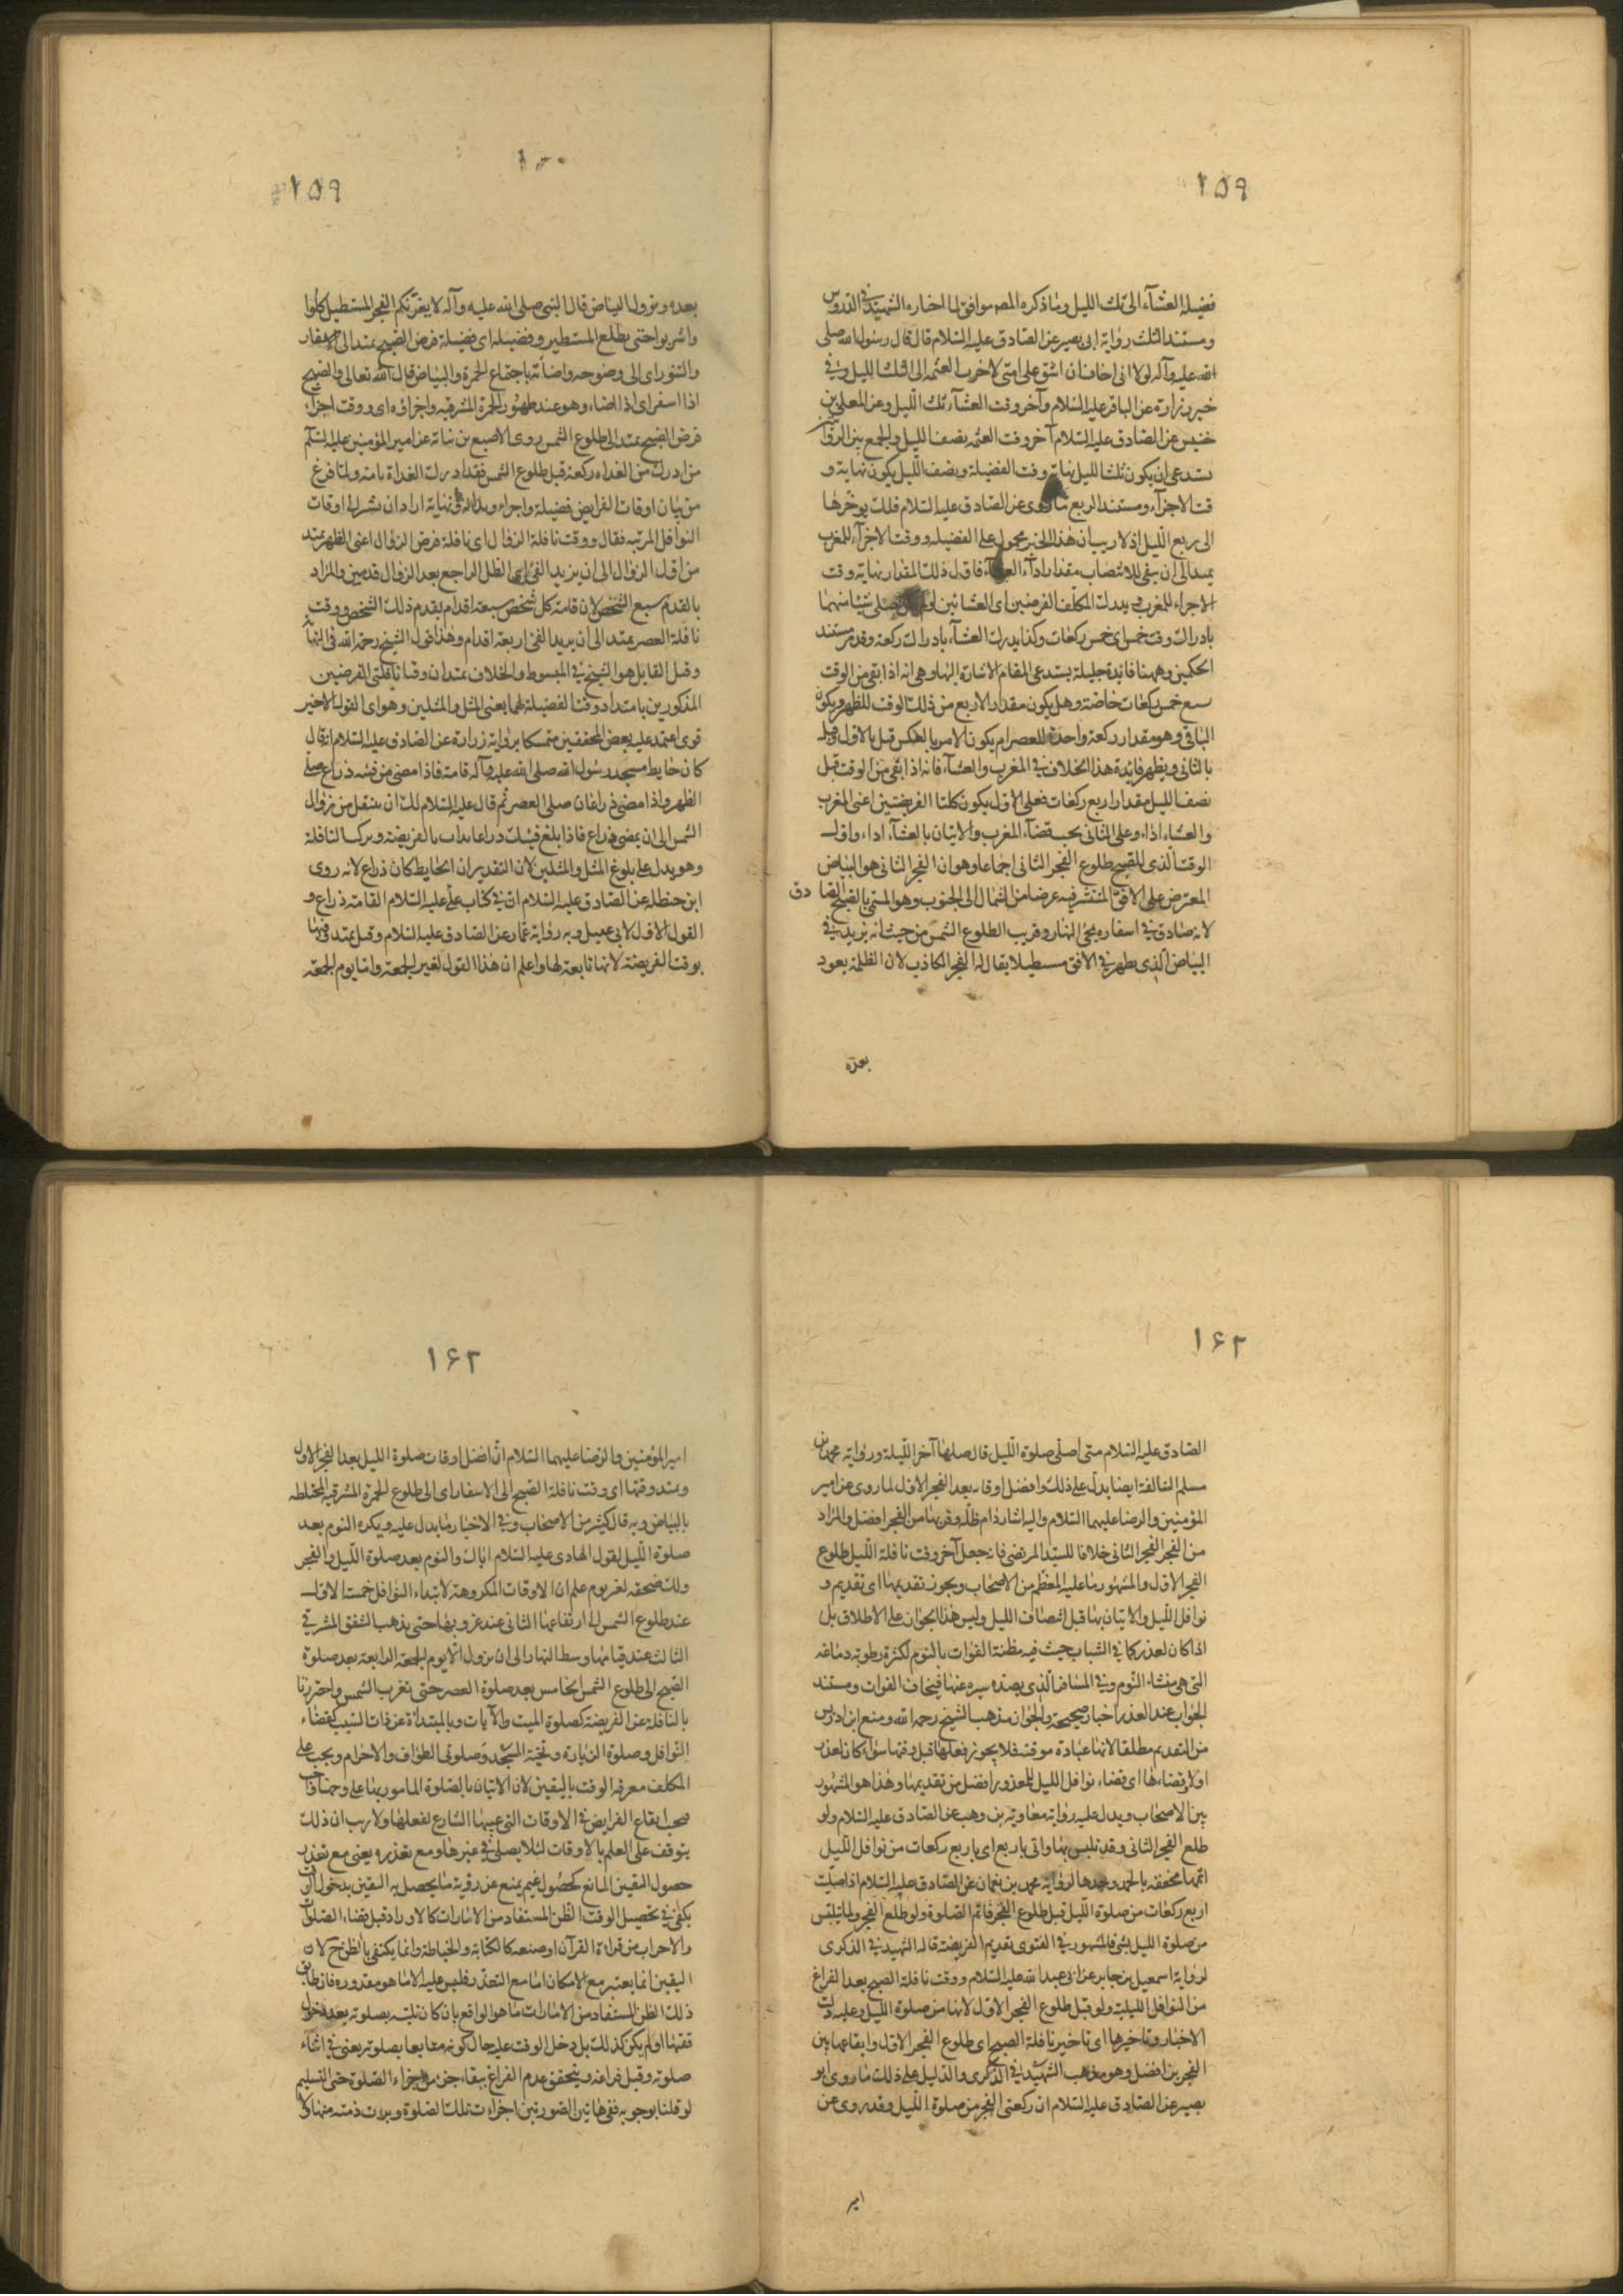 ۱۵۹
فضيلة العشآء الى ثلث الليل وما ذكره المص موافق لما اختاره الشهيد في الدروس
ومستند الثلث رواية ابي بصير عن الصادق عليه السلام قال قال رسول الله صلى
الله عليه وآله لولا اني اخاف ان اشق على امتي لاخرت العتمة الى ثلث الليل وفي
خبر زرارة عن الباقر عليه السلام وآخر وقت العشآء ثلث الليل وعن المعلى بن
خنيس عن الصادق عليه السلام آخر وقت العتمة نصف الليل والجمع بين الروايتين
يستدعي ان يكون ثلث الليل نهاية وقت الفضيلة ونصف الليل يكون نهاية و
قت الاجزآء ومستند الربع ما روي عن الصادق عليه السلام قلت يؤخرها
الى ربع الليل اذ لا ريب ان هذا الخبر محمول على الفضيلة ووقت الاجزآء للمغرب
يمتد الى ان يبقى للانتصاف مقدار ادآء العشآء فاول ذلك المقدار نهاية وقت
الاجزاء للمغرب ويدرك المكلف الفرضين اى العشائين لو صلى شيئا منهما
بادراك وقت خمس اى خمس ركعات وكذا يدرك العشآء بادراك ركعة وقد مر مستند
الحكمين وههنا فائدة جليلة يستدعي المقام الاشارة اليها وهي انه اذا بقي من الوقت
يسع خمس ركعات خاصة وهل يكون مقدار الاربع من ذلك الوقت للظهر ويكون
الباقي وهو مقدار ركعة واحدة للعصر ام يكون الامر بالعكس قيل بالاول وقيل
بالثاني ويظهر فائدة هذا الخلاف في المغرب والعشآء فانه اذا بقي من الوقت قبل
نصف الليل مقدار اربع ركعات فعلى الاول يكون كلتا الفريضتين اعنى المغرب
والعشاء اداء وعلى الثاني يجب قضآء المغرب والاتيان بالعشآء اداء واول
الوقت الذي للصبح طلوع الفجر الثاني اجماعا وهو ان الفجر الثاني هو البياض
المعترض على الافق المنتشر فيه عرضا من الشمال الى الجنوب وهو المسمى بالصبح الصادق
لانه صادق في اسفاره مجئ النهار وقريب الطلوع الشمس من حيث انه يزيد في
البياض الذي يظهر في الافق مستطيلا يقال له الفجر الكاذب لان الظلمة يعود
بعده
۱۵۹
بعده ويزول البياض قال النبي صلى الله عليه وآله لا يغرنكم الفجر المستطيل كلوا
واشربوا حتى يطلع المستطير وفضيلة اى فضيلة فرض الصبح يمتد الى الاسفار
والتنور اى الى وضوحه واضائته باجتماع الحمرة والبياض قال الله تعالى والصبح
اذا اسفر اى اذا اضاء وهو عند ظهور الحمرة المشرقية واجزاؤه اى ووقت اجزاء
فرض الصبح يمتد الى طلوع الشمس روى الاصبغ بن نباتة عن امير المؤمنين عليه السلم
من ادرك من الغداة ركعة قبل طلوع الشمس فقد ادرك الغداة تامة ولما فرغ
من بيان اوقات الفرايض فضيلة واجزاء وبداية ونهاية اراد ان يشير الى اوقات
النوافل المرتبة فقال ووقت نافلة الزوال اى نافلة فرض الزوال اعنى الظهر يمتد
من اول الزوال الى ان يزيد الفئ اى الظل الراجع بعد الزوال قدمين والمراد
بالقدم سبع الشخص لان قامة كل شخص سبعة اقدام بقدم ذلك الشخص ووقت
نافلة العصر يمتد الى ان يزيد الفئ اربعة اقدام وهذا قول الشيخ رحمه الله في النهاية
وقيل القايل هو الشيخ في المبسوط والخلاف يمتد ان وقتا نافلتي الفرضين
المذكورين بامتداد وقت الفضيلة لهما يعنى المثل والمثلين وهو اى القول الاخير
قوى اعتمد عليه بعض المحققين متمسكا برواية زرارة عن الصادق عليه السلام انه قال
كان حايط مسجد رسول الله صلى الله عليه وآله قامة فاذا مضى من فيئه ذراع صلى
الظهر واذا مضى ذراعان صلى العصر ثم قال عليه السلام لك ان يتنفل من زوال
الشمس الى ان يمضى ذراع فاذا بلغ فيئك ذراعا بدات بالفريضة وتركت النافلة
وهو يدل على بلوغ المثل والمثلين لان التقدير ان الحايط كان ذراع لانه روى
ابن حنظلة عن الصادق عليه السلام ان في كتاب علي عليه السلام القامة ذراع و
القول الاول لابي عقيل وبه رواية عمار عن الصادق عليه السلام وقيل يمتد وقتها
بوقت الفريضة لانها تابعة لها واعلم ان هذا القول لغير الجمعة واما يوم الجمعة
۱۶۲
الصادق عليه السلام متى اصلى صلوة الليل قال صلها آخر الليلة ورواية محمد بن
مسلم السالفة ايضا يدل على ذلك وافضل اوقاته بعد الفجر الاول لما روى عن امير
المؤمنين والرضا عليهما السلام واليه اشار دام ظله وقربها من الفجر افضل والمراد
من الفجر الفجر الثاني خلافا للسيد المرتضى فانه جعل آخر وقت نافلة الليل طلوع
الفجر الاول والمشهور ما عليه المعظم من الاصحاب ويجوز تقديمها اى تقديم و
نوافل الليل والاتيان بها قبل انتصاف الليل وليس هذا الجواز على الاطلاق بل
اذا كان لعذر كما في الشباب حيث فيه مظنة الفوات بالنوم لكثرة رطوبة دماغه
التي هي منشاء النوم وفي المسافر الذي يصده سيره عنها فيخاف الفوات ومستند
الجواب عند العذر اخبار صحيحة والجواز مذهب الشيخ رحمه الله ومنع ابن ادريس
من التقديم مطلقا لانها عبادة موقتة فلا يجوز فعلها قبل وقتها سواء كان لعذر
او لا وقضاءها اى قضاء نوافل الليل للمعذور افضل من تقديمها وهذا هو المشهور
بين الاصحاب ويدل عليه رواية معاوية بن وهب عن الصادق عليه السلام ولو
طلع الفجر الثاني وقد تلبس بها واتى باربع اى باربع ركعات من نوافل الليل
اتمها مخففة بالحمد وحدها لرواية محمد بن نعمان عن الصادق عليه السلام اذا صليت
اربع ركعات من صلوة الليل قبل طلوع الفجر فاتم الصلوة ولو طلع الفجر ولما يتلبس
من صلوة الليل بشئ فالمشهور في الفتوى تقديم الفريضة قاله الشهيد في الذكرى
لرواية اسمعيل بن جابر عن ابي عبد الله عليه السلام ووقت نافلة الصبح بعد الفراغ
من النوافل الليلية ولو قبل طلوع الفجر الاول لانها من صلوة الليل وعليه دلت
الاخبار وتاخيرها اى تاخير نافلة الصبح اى طلوع الفجر الاول وايقاعها بين
الفجرين افضل وهو مذهب الشهيد في الذكرى والدليل على ذلك ما روى ابو
بصير عن الصادق عليه السلام ان ركعتي الفجر من صلوة الليل وقد روى عن
امير
۱۶۲
امير المؤمنين والرضا عليهما السلام ان افضل اوقات صلوة الليل بعد الفجر الاول
ويمتد وقتها اى وقت نافلة الصبح الى الاسفار اى الى طلوع الحمرة المشرقية المختلطة
بالبياض وبه قال كثير من الاصحاب وفي الاخبار ما يدل عليه ويكره النوم بعد
صلوة الليل لقول الهادي عليه السلام اياك والنوم بعد صلوة الليل والفجر
ولك ضجعة بغير نوم علم ان الاوقات المكروهة لابتداء النوافل خمسة الاول
عند طلوع الشمس الى ارتفاعها الثاني عند غروبها حتى يذهب الشفق المشرقي
الثالث عند قيامها وسط النهار الى ان يزول الا يوم الجمعة الرابعة بعد صلوة
الصبح الى طلوع الشمس الخامس بعد صلوة العصر حتى تغرب الشمس واحترزنا
بالنافلة عن الفريضة كصلوة الميت والآيات وبالمبتدأة عن ذات السبب كقضاء
النوافل وصلوة الزيارة وتحية المسجد وصلوتي الطواف والاحرام ويجب على
المكلف معرفة الوقت باليقين لان الاتيان بالصلوة المامور بها على وجهها
ايقاع الفرايض في الاوقات التي عينها الشارع لفعلها ولا ريب ان ذلك
يتوقف على العلم بالاوقات لئلا يصلى في غيرها ومع تعذره يعنى مع تعذر
حصول اليقين المانع كحصول غيم يمنع عن رؤية ما يحصل به اليقين بدخول
يكفى في تحصيل الوقت الظن المستفاد من الامارات كالاوراد قبل قضاء الصلوات
والاحزاب من قراءة القرآن او صنعة كالكتابة والخياطة وانما يكتفى بالظن ح لان
اليقين انما يعتبر مع الامكان اما مع التعذر فليس عليه الا ما هو مقدوره فان طابق
ذلك الظن المستفاد من الامارات ما هو الواقع بان كان تلبسه بصلوته بعد دخول
وقتها او لم يكن كذلك بل دخل الوقت عليه حال كونه متلبسا بصلوته يعنى في اثناء
صلوته وقبل فراغه ويتحقق عدم الفراغ ببقاء جزء من اجزاء الصلوة حتى التسليم
لو قلنا بوجوبه ففى هاتين الصورتين اجزات تلك الصلوة وبرئت ذمته منها